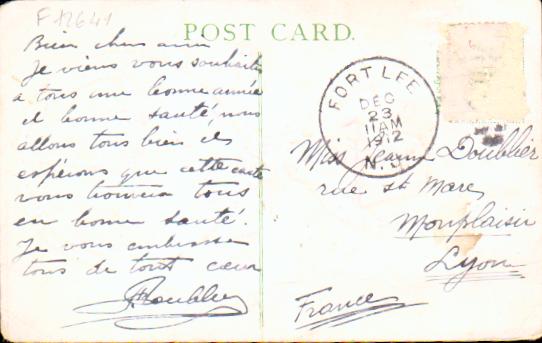 F12641
POST CARD.
Bien chers amis
Je viens vous souhaiter
à tous une bonne année
et bonne santé, nous
allons tous bien et
espérons que cette carte
vous trouvera tous
en bonne santé.
Je vous embrasse
tous de tout cœur
FDoublier
FORT LEE
DEC
23
11 AM
1912
N.J.
Miss Jeanne Doublier
rue St Marc
Monplaisir
Lyon
France